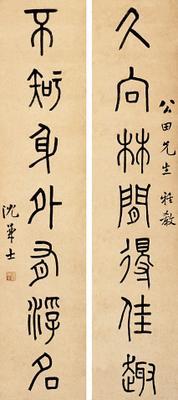 公田先生雅教
久向林間得佳趣
不知身外有浮名
沈兼士